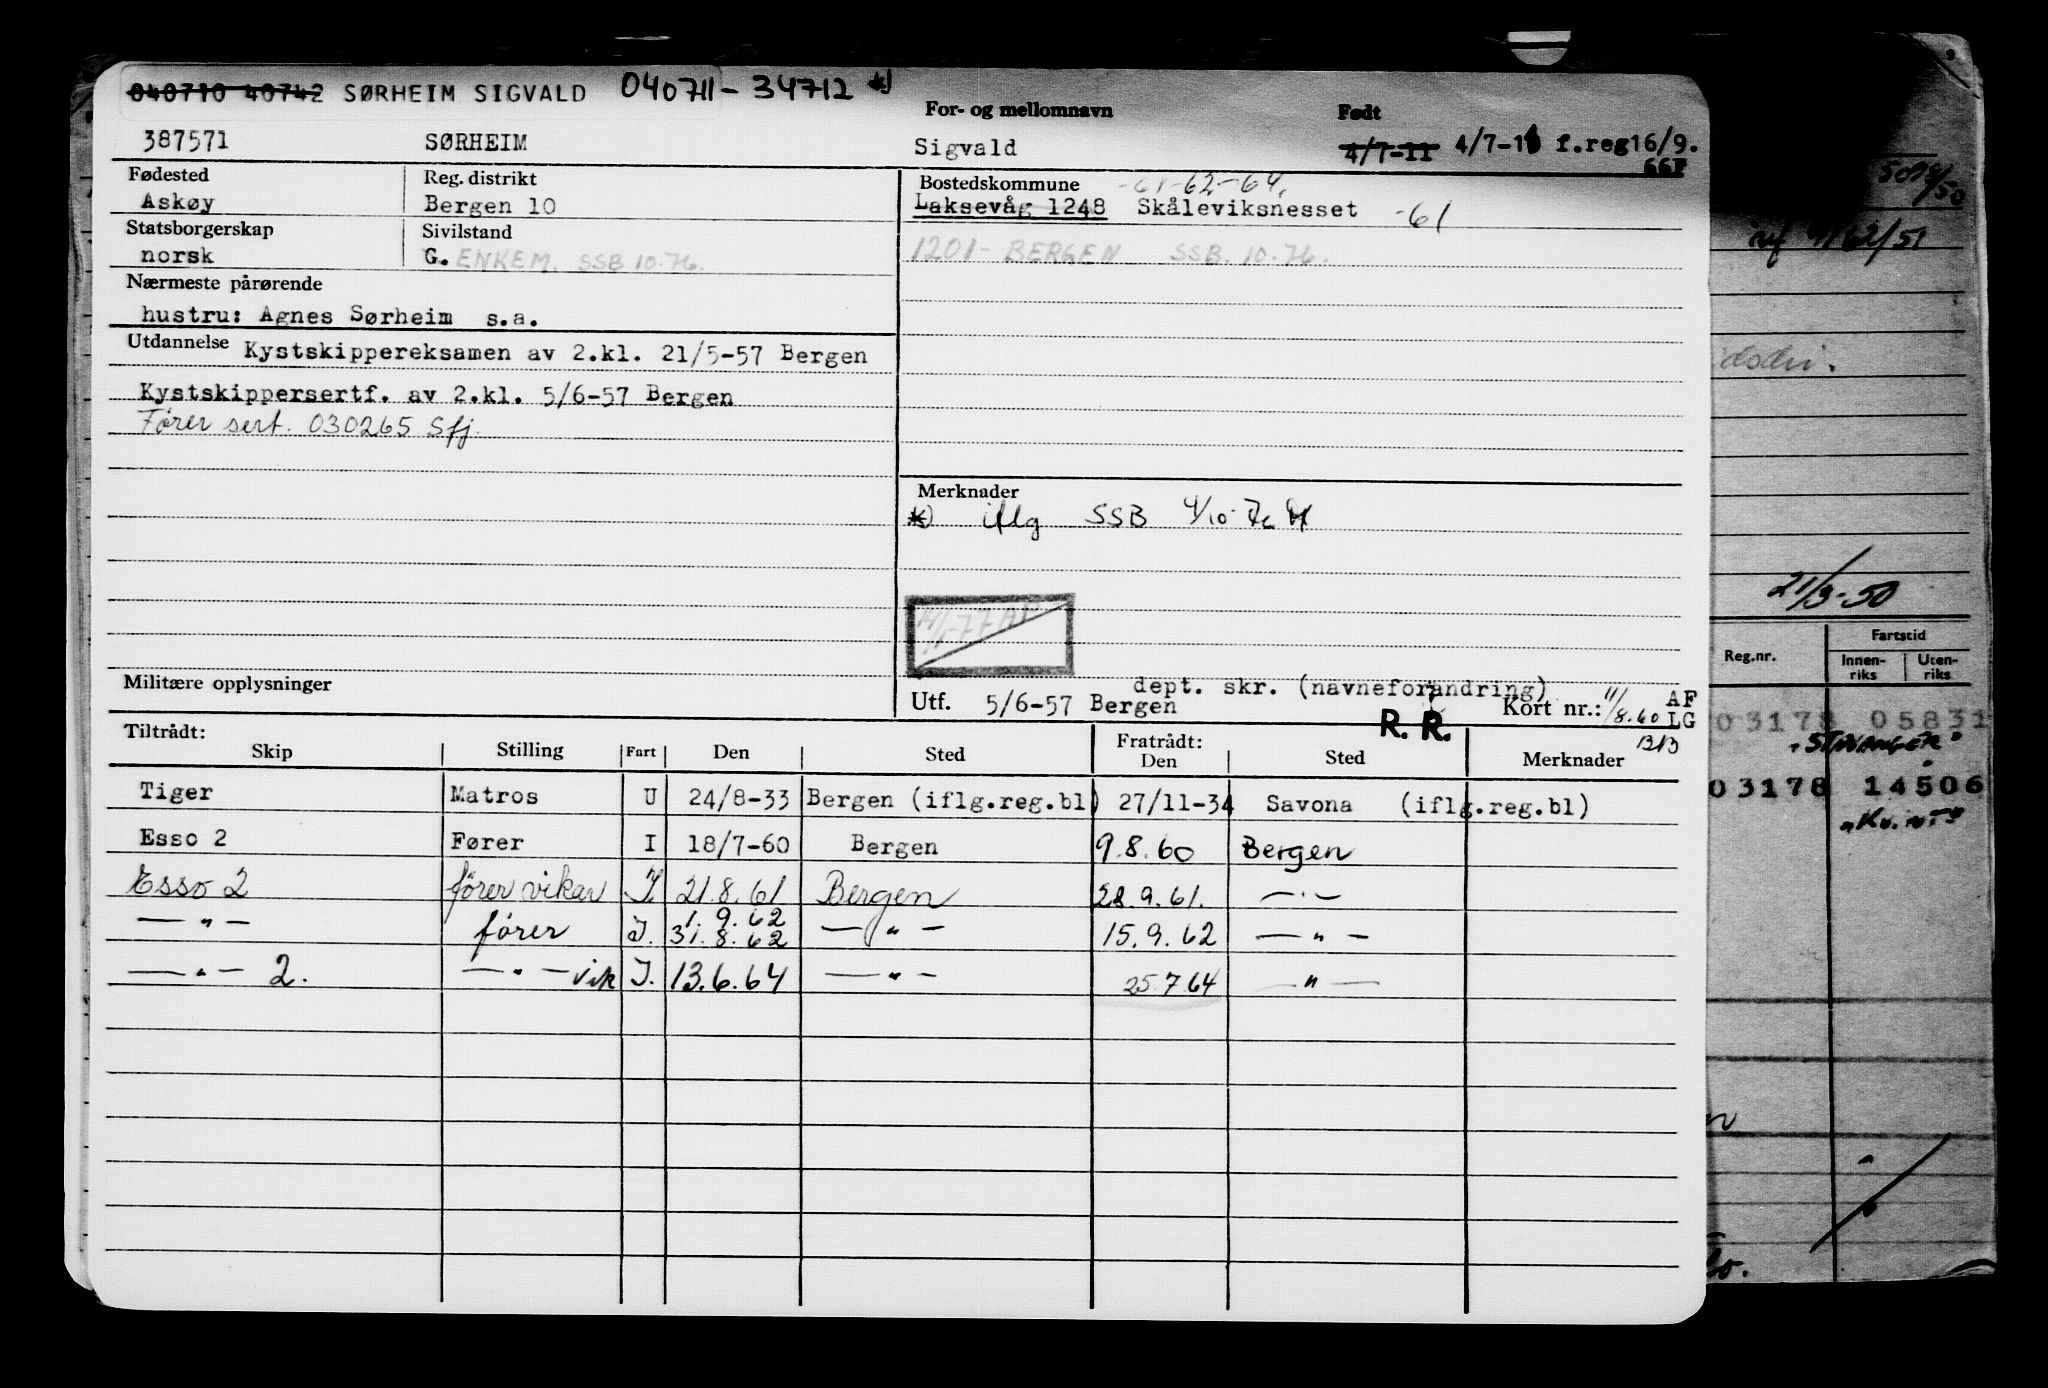 040710 40742 SØRHEIM SIGVALD 040711-34712 *)
For- og mellomnavn Født
387571 SØRHEIM Sigvald 4/7-11 4/7-11 f.reg16/9.
66P
Fødested Reg. distrikt Bostedskommune -61-62-64.
Askøy Bergen 10 Laksevåg 1248 Skåleviksnesset -61
Statsborgerskap Sivilstand
norsk G. ENKEM. SSB 10.76. 1201- BERGEN SSB. 10.76.
Nærmeste pårørende
hustru: Agnes Sørheim s.a.
Utdannelse Kystskippereksamen av 2.kl. 21/5-57 Bergen
Kystskippersertf. av 2.kl. 5/6-57 Bergen
Fører sert. 030265 Sfj.
Merknader
*) iflg SSB 4/10-76
Militære opplysninger
dept. skr. (navneforandring)
Utf. 5/6-57 Bergen Kort nr.: 11/8.60 AF
R. R. LG
Tiltrådt: Fratrådt:
Skip Stilling Fart Den Sted Den Sted Merknader
Tiger Matros U 24/8-33 Bergen (iflg.reg.bl) 27/11-34 Savona (iflg.reg.bl)
Esso 2 Fører I 18/7-60 Bergen 9.8.60 Bergen
Esso 2 fører vikar I. 21.8.61 Bergen 28.9.61. — · —
— " — fører I. 1.9.62 31.8.62 — " — 15.9.62 — " —
— " — 2. — " — vik I. 13.6.64 — " — 25.7.64 — " —
21/3-50
Reg.nr. Fartstid
Innen-riks Uten-riks
03178 05831
"STAVANGER"
03178 14506